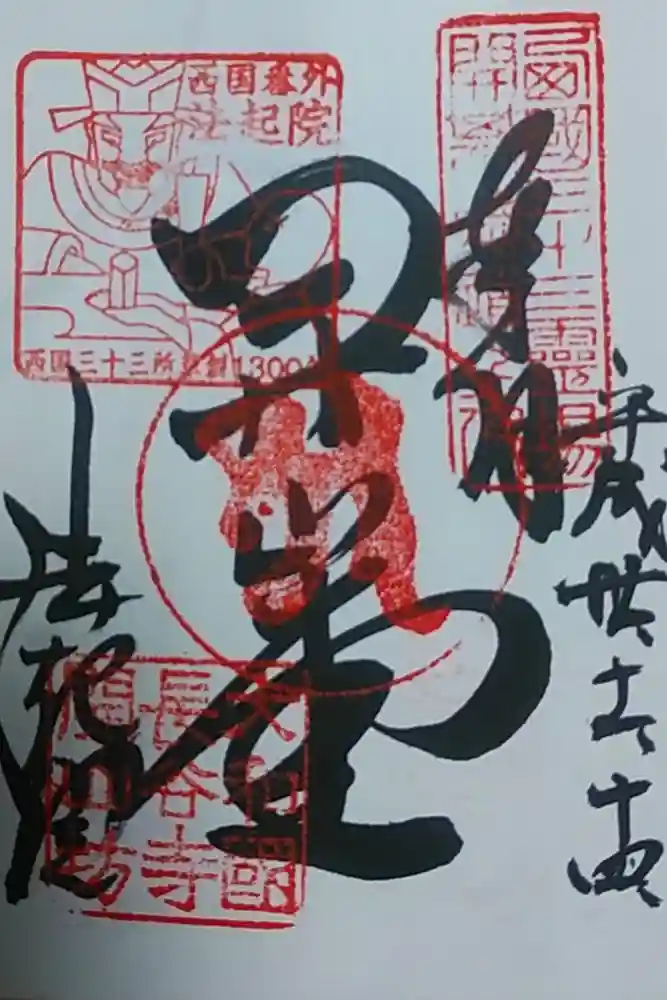 奉拝
西國三十三靈場
平成廿
十四
開山堂
西国番外
法起院
西国三十三所草創1300年
法起院
大和國
長谷寺
開山坊